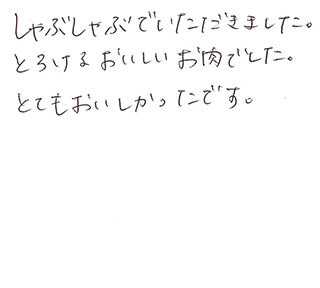 しゃぶしゃぶでいただきました。
とろけるおいしいお肉でした。
とてもおいしかったです。